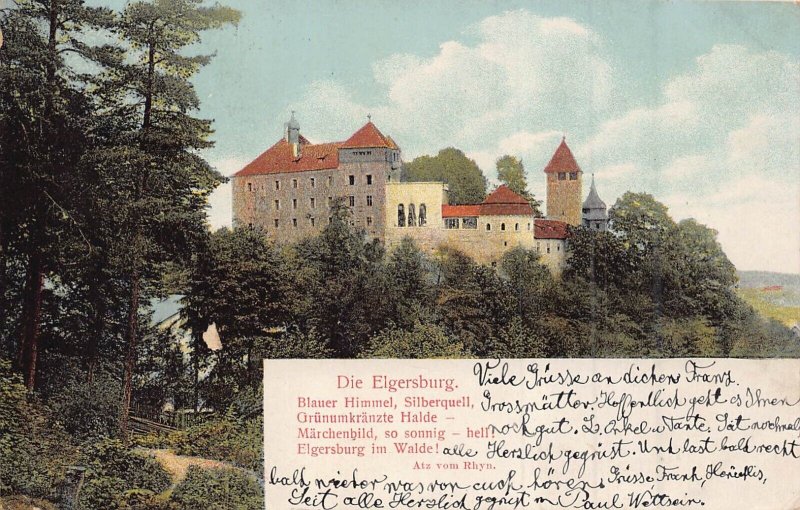 Die Elgersburg.
Blauer Himmel, Silberquell,
Grünumkränzte Halde –
Märchenbild, so sonnig – hell!
Elgersburg im Walde!
Atz vom Rhyn.
Viele Grüsse an dich Franz,
Grossmütter. Hoffentlich geht es Ihnen
noch gut. Onkel u Tante.
alle Herzlich gegrüst. Und last bald recht
bald wieder was von euch hören. Grüsse Frank,
Seit alle Herzlich gegrüst Paul